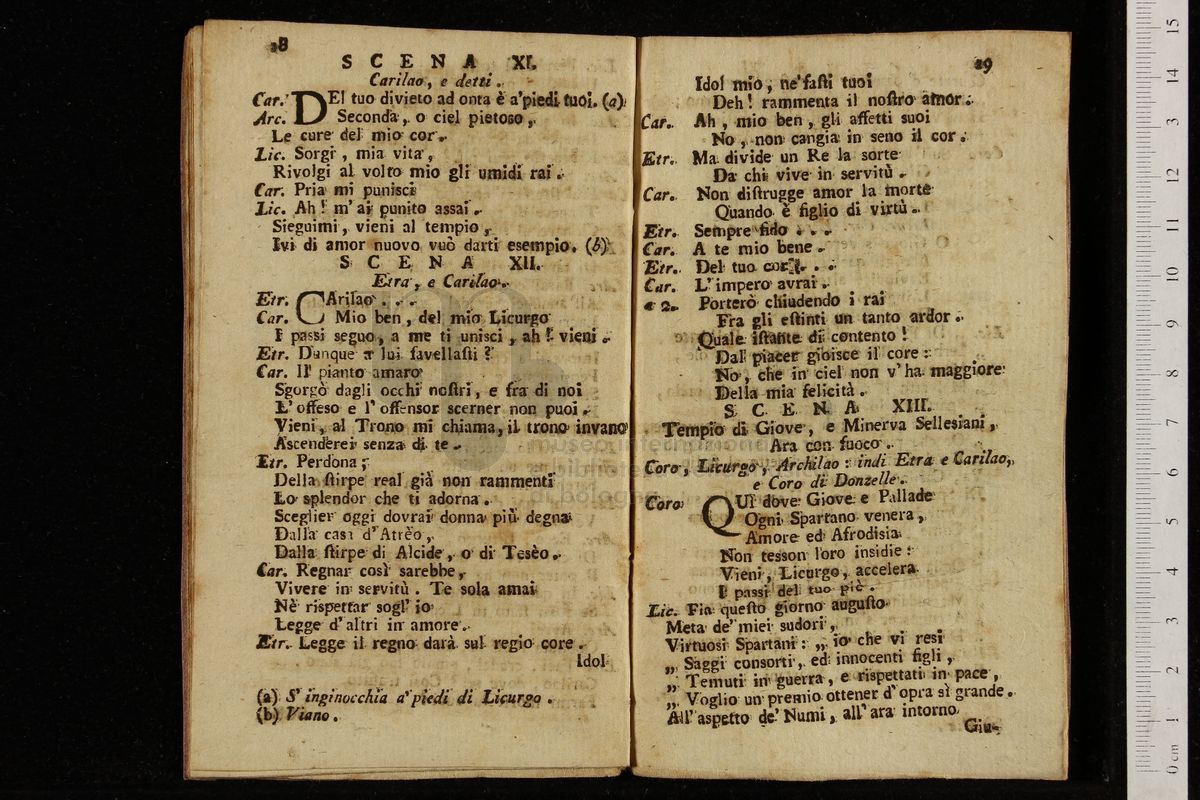 18
SCENA XI.
Carilao, e detti.
Car. DEl tuo divieto ad onta è a'piedi tuoi. (a)
Arc. Seconda, o ciel pietoso,
Le cure del mio cor.
Lic. Sorgi, mia vita,
Rivolgi al volto mio gli umidi rai.
Car. Pria mi punisci
Lic. Ah! m'ai punito assai.
Sieguimi, vieni al tempio,
Ivi di amor nuovo vuò darti esempio. (b)
SCENA XII.
Etra, e Carilao.
Etr. CArilao . . .
Car. Mio ben, del mio Licurgo
I passi seguo, a me ti unisci, ah! vieni.
Etr. Dunque a lui favellasti?
Car. Il pianto amaro
Sgorgò dagli occhi nostri, e fra di noi
L'offeso e l'offensor scerner non puoi.
Vieni, al Trono mi chiama, il trono invano
Ascenderei senza di te.
Etr. Perdona;
Della stirpe real già non rammenti
Lo splendor che ti adorna.
Sceglier oggi dovrai donna più degna
Dalla casa d'Atrèo,
Dalla stirpe di Alcide, o di Tesèo.
Car. Regnar così sarebbe,
Vivere in servitù. Te sola amai
Nè rispettar sogl'io
Legge d'altri in amore.
Etr. Legge il regno darà sul regio core.
Idol
(a) S'inginocchia a'piedi di Licurgo.
(b) Viano.
19
Idol mio, ne'fasti tuoi
Deh! rammenta il nostro amor.
Car. Ah, mio ben, gli affetti suoi
No, non cangia in seno il cor.
Etr. Ma divide un Re la sorte
Da chi vive in servitù.
Car. Non distrugge amor la morte
Quando è figlio di virtù.
Etr. Sempre fido . . .
Car. A te mio bene.
Etr. Del tuo cor . . .
Car. L'impero avrai.
a 2. Porterò chiudendo i rai
Fra gli estinti un tanto ardor.
Quale istante di contento!
Dal piacer gioisce il core:
No, che in ciel non v'ha maggiore
Della mia felicità.
SCENA XIII.
Tempio di Giove, e Minerva Sellesiani,
Ara con fuoco.
Coro, Licurgo, Archilao: indi Etra e Carilao,
e Coro di Donzelle.
Coro QUì dove Giove e Pallade
Ogni Spartano venera,
Amore ed Afrodisia
Non tesson loro insidie:
Vieni, Licurgo, accelera
I passi del tuo piè.
Lic. Fia questo giorno augusto
Meta de'miei sudori,
Virtuosi Spartani: „ io che vi resi
„ Saggi consorti, ed innocenti figli,
„ Temuti in guerra, e rispettati in pace,
„ Voglio un premio ottener d'opra sì grande.
All'aspetto de'Numi, all'ara intorno
Giu-
museo internazionale
biblioteca
di bologna
15
14
13
12
11
10
9
8
7
6
5
4
3
2
1
0 cm